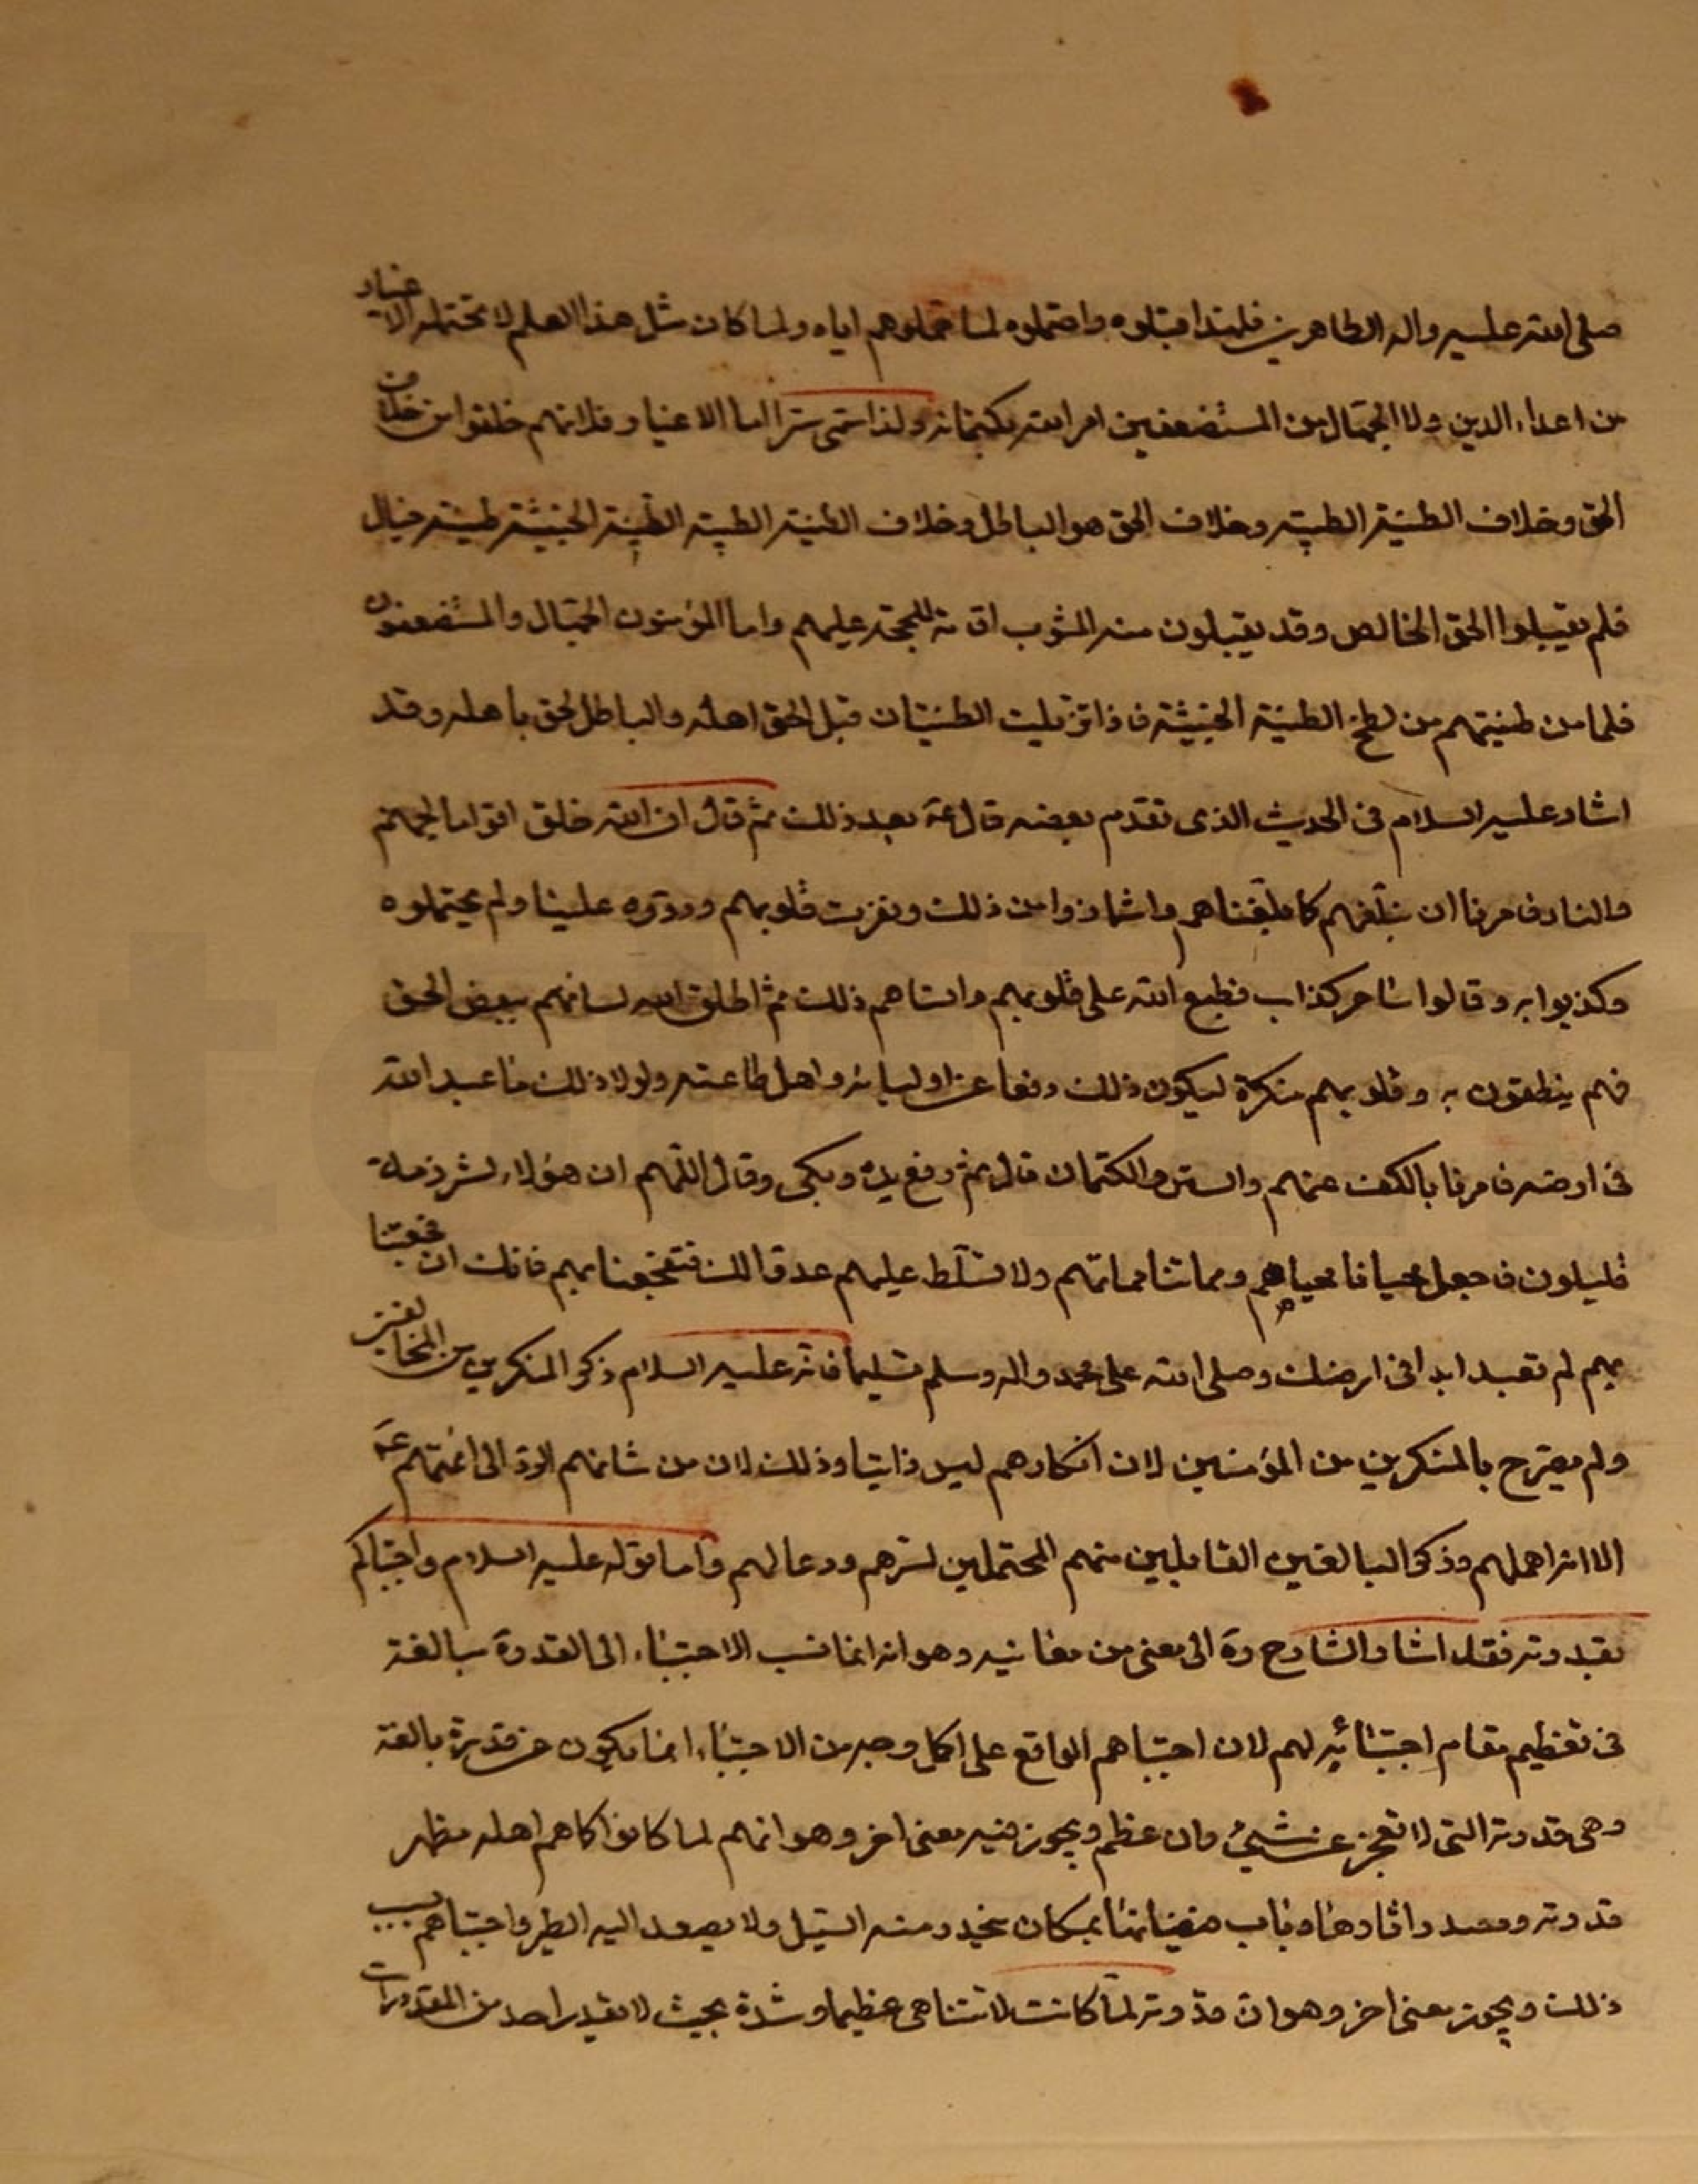 صلى الله عليه واله الطاهرين فلهذا قبلوه واحتملوه لما حملوهم اياه ولما كان مثل هذا العلم لا تحتمله الاغيار
من اعداء الدين ولا الجهال من المستضعفين امر الله بكتمانه ولذا سمى سترا اما الاغيار فلانهم خلقوا من خلاف
الحق وخلاف الطينة الطيبة وخلاف الحق هو الباطل وخلاف الطينة الطيبة الطينة الخبيثة طينة خبال
فلم يقبلوا الحق الخالص وقد يقبلون منه المشوب اقامة للحجة عليهم واما المؤمنون الجهال والمستضعفون
فلما من طينتهم من لطخ الطينة الخبيثة فاذا تزيلت الطينتان قبل الحق اهله والباطل لحق باهله وقد
اشار عليه السلام فى الحديث الذى تقدم بعضه قال عه بعد ذلك ثم قال ان الله خلق اقواما لجهنم
والنار فامرنا ان نبلغهم كما بلغناهم واشمازوا من ذلك ونفرت قلوبهم وردوه علينا ولم يحتملوه
وكذبوا به وقالوا ساحر كذاب فطبع الله على قلوبهم وانساهم ذلك ثم اطلق الله لسانهم ببعض الحق
فهم ينطقون به وقلوبهم منكرة ليكون ذلك دفعا عن اوليائه واهل طاعته ولولا ذلك ما عبد الله
فى ارضه فامرنا بالكف عنهم والستر والكتمان قال ثم رفع يده وبكى وقال اللهم ان هؤلاء لشرذمة
قليلون فاجعل محيانا محياهم ومماتنا مماتهم ولا تسلط عليهم عدوا لك فتفجعنا بهم فانك ان فجعتنا
بهم لم تعبد ابدا فى ارضك وصلى الله على محمد واله وسلم تسليما فانه عليه السلام ذكر المنكرين من المخالفين
ولم يصرح بالمنكرين من المؤمنين لان انكارهم ليس ذاتيا وذلك لان من شانهم الرد الى ائمتهم عه
الا انه اهملهم وذكر البالغين القابلين منهم المحتملين لسرهم ودعا لهم واما قوله عليه السلام واجتباكم
بقدرته فقد اشار الشارح ره الى معنى من معانيه وهو انه انما نسب الاجتباء الى القدرة مبالغة
فى تعظيم مقام اجتبائه لهم لان اجتباهم الواقع على اكمل وجه من الاجتباء انما يكون عن قدرة بالغة
وهى قدرته التى لا تعجز عن شئ وان عظم ويجوز فيه معنى اخر وهو انهم لما كانوا كما هم اهله مظهر
قدرته ومصدر اثارها وباب منشائها بمكان ينحدر منه السيل ولا يصعد اليه الطير واجتباهم بسبب
ذلك ويجوز معنى اخر وهو ان قدرته لما كانت لا تتناهى عظيما وشدة بحيث لا يقدر احد من المقدورات